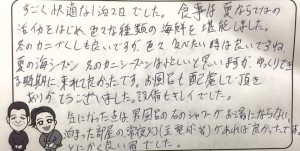 すごく快適な1泊2日でした。食事は夏ならではの
活イカをはじめ、色々な種類の海鮮を堪能しました。
冬のカニづくしも良いですが、色々食べたい時は良いですね。
夏の海シーズン 冬のカニシーズンはよいと思いますが、ゆっくりでき
る時期に来れて良かったです。お風呂も配慮して頂き
ありがとうございました。設備もキレイでした。
気になった点は男風呂の右のシャワーがお湯にならない、
泊まった部屋の
なければ良かったです。
とにかく良い宿でした。